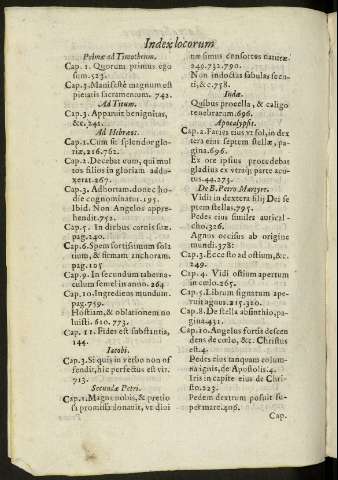 Index locorum
Primæ ad Timotheum.
Cap. 1. Quorum primus ego
sum. 523.
Cap. 3. Manifestè magnum est
pietatis sacramentum. 742.
Ad Titum.
Cap. 3. Apparuit benignitas,
&c. 241.
Ad Hebræos.
Cap. 1. Cum sit splendor glo-
riæ, 216. 762.
Cap. 2. Decebat eum, qui mul
tos filios in gloriam addu-
xerat. 267.
Cap. 3. Adhortam. donec ho-
die cognominatur. 195.
Ibid. Non Angelos appre
hendit. 752.
Cap. 5. In diebus carnis suæ.
pag. 240.
Cap. 6. Spem fortissimum sola
tium, & firmam anchoram.
pag. 105
Cap. 9. In secundum taberna-
culum semel in anno. 264
Cap. 10. Ingrediens mundum.
pag. 759.
Hostiam, & oblationem no
luisti. 610. 773.
Cap. 11. Fides est substantia,
144.
Iacobi.
Cap. 3. Si quis in verbo non of
fendit, hic perfectus est vir.
713.
Secundæ Petri.
Cap. 1. Magna nobis, & pretio
sa promissa donavit, vt divi
næ simus consortes naturæ.
249. 732. 790.
Non indoctas fabulas secu-
ti, & c. 758.
Iudæ.
Quibus procella, & caligo
tenebrarum. 696.
Apocalypsis.
Cap. 2. Facies eius vt sol, in dex
tera eius septem stellæ, pa-
gina. 696.
Ex ore ipsius procedebat
gladius ex vtraq; parte acu-
tus. 44. 273.
De B. Petro Martyre.
Vidit in dextera filij Dei se
ptem stellas. 795.
Pedes eius similes aurical-
cho. 326.
Agnus occisus ab origine
mundi. 378:
Cap. 3. Ecce sto ad ostium, &c.
249.
Cap. 4. Vidi ostium apertum
in cælo. 265.
Cap. 5. Librum signatum ape-
ruit agnus. 215. 310.
Cap. 8. De stella absinthio, pa-
gina. 431.
Cap. 10. Angelus fortis descen
dens de cœlo, &c. Christus
est. 4.
Pedes eius tanquam colum-
na ignis, de Apostolis. 4.
Iris in capite eius de Chri-
sto. 223.
Pedem dextrum posuit su-
per mare. 406.
Cap.